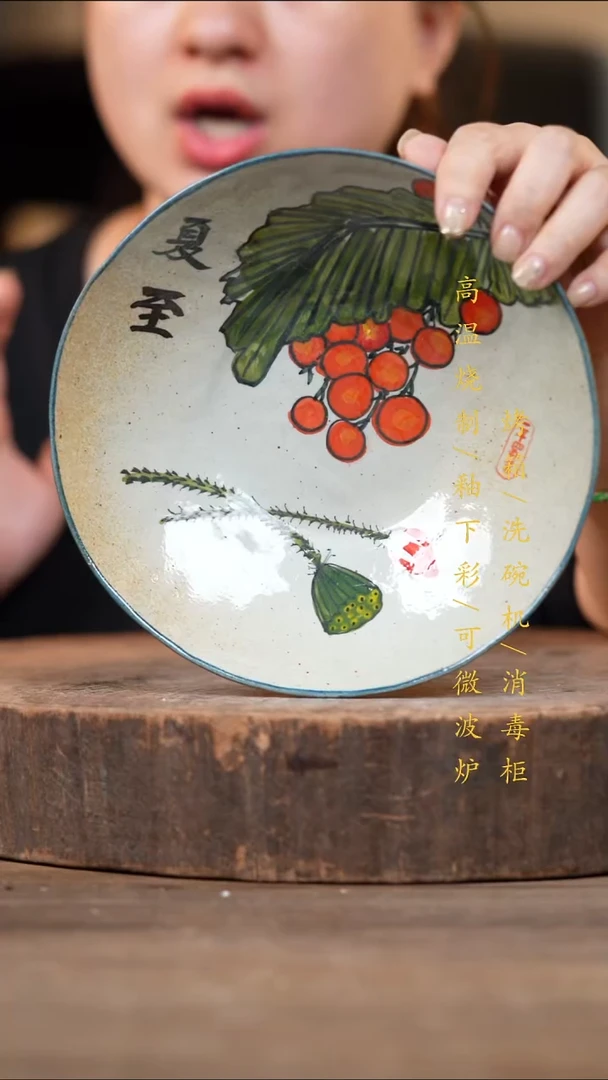 夏至
高温烧制/釉下彩/可微波炉
/洗碗机/消毒柜